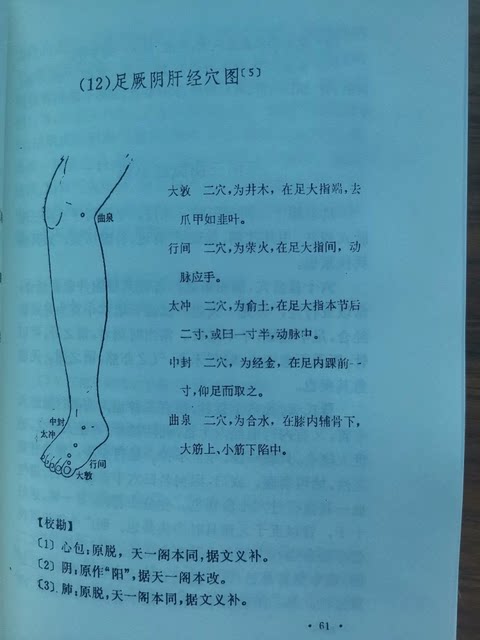 (12)足厥阴肝经穴图〔5〕
曲泉
中封
太冲
行间
大敦
大敦 二穴,为井木,在足大指端,去
爪甲如韭叶。
行间 二穴,为荥火,在足大指间,动
脉应手。
太冲 二穴,为俞土,在足大指本节后
二寸,或曰一寸半,动脉中。
中封 二穴,为经金,在足内踝前一
寸,仰足而取之。
曲泉 二穴,为合水,在膝内辅骨下,
大筋上、小筋下陷中。
【校勘】
〔1〕心包:原脱,天一阁本同,据文义补。
〔2〕阴:原作“阳”,据天一阁本改。
〔3〕肺:原脱,天一阁本同,据文义补。
· 61 ·